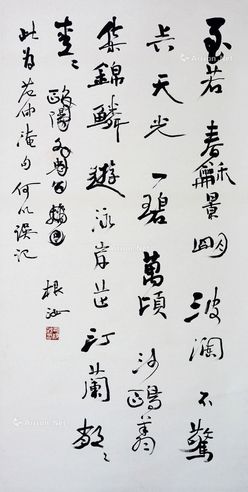 至若春龢景明波瀾不驚
上下天光一碧萬頃沙鷗翔
集錦鱗遊泳岸芷汀蘭郁〻
青〻歐陽文忠公
此為范仲淹句何以誤記
根